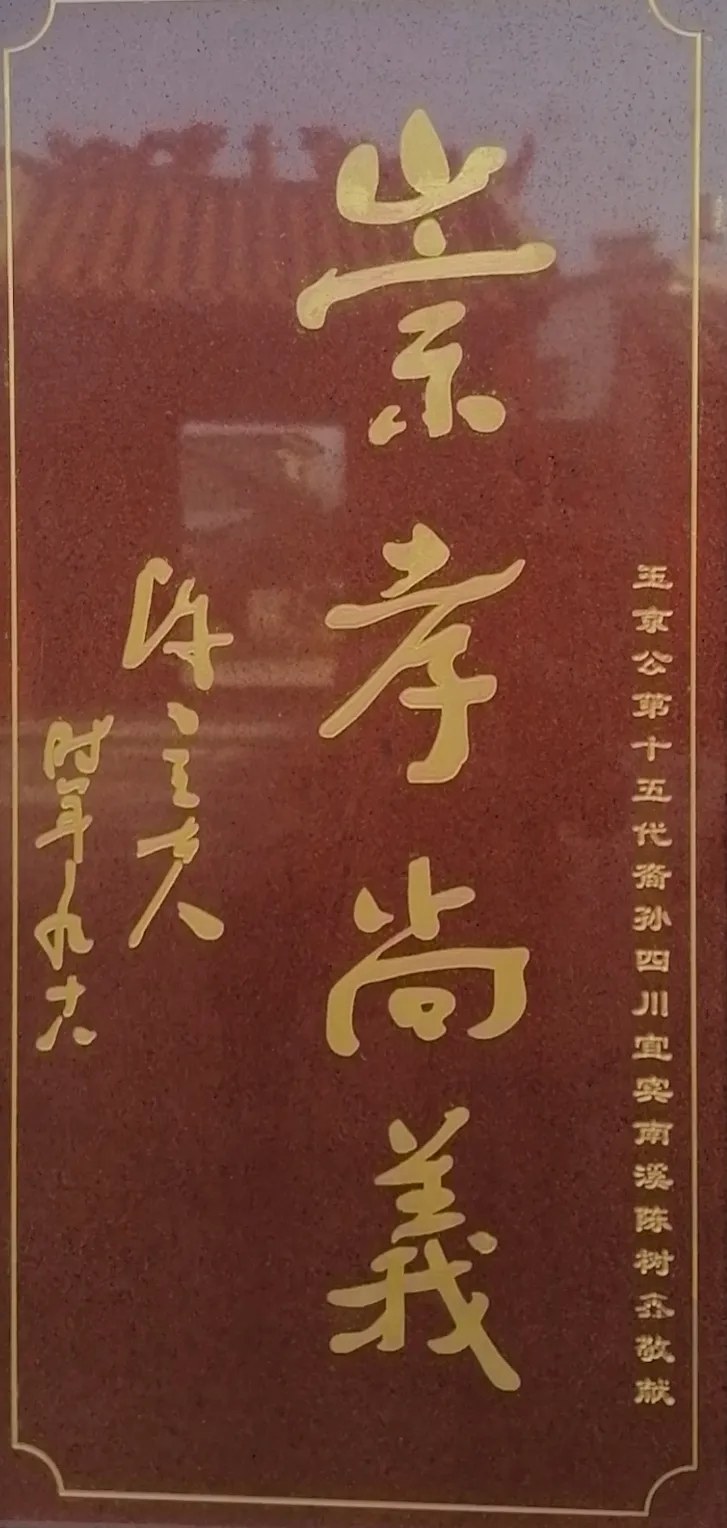 玉京公第十五代裔孙四川宜宾南溪陈树鑫敬献
崇孝尚義
陈立夫
时年九十六